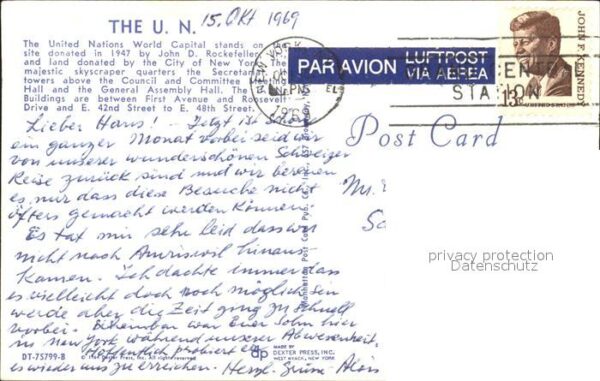 THE U. N.
15. Okt 1969
The United Nations World Capital stands on the
site donated in 1947 by John D. Rockefeller
and land donated by the City of New York. The
majestic skyscraper quarters the Secretariat
towers above the Council and Committee Meeting
Hall and the General Assembly Hall. The
Buildings are between First Avenue and Roosevelt
Drive and E. 42nd Street to E. 48th Street.
PAR AVION
LUFTPOST
VIA AEREA
JOHN F. KENNEDY
13c
STATION
Post Card
Lieber Hans! - Jetzt ist schon
ein ganzer Monat vorbei seid wir
von unserer wunderschönen Schweizer
Reise zurück sind und wir bereuen
es nur dass diese Besuche nicht
öfters gemacht werden können.
Es tat mir sehr leid dass wir
nicht nach Amriswil hinaus
kamen. Ich dachte immer dass
es vielleicht doch noch möglich sein
werde aber die Zeit ging zu schnell
vorbei. war Euer Sohn hier
in New York während unserer Abwesenheit.
Hoffentlich probiert er
es wieder uns zu erreichen. Herzl. Grüsse
privacy protection
Datenschutz
DT-75799-B
dp
MADE BY
DEXTER PRESS, INC.
WEST NYACK, NEW YORK